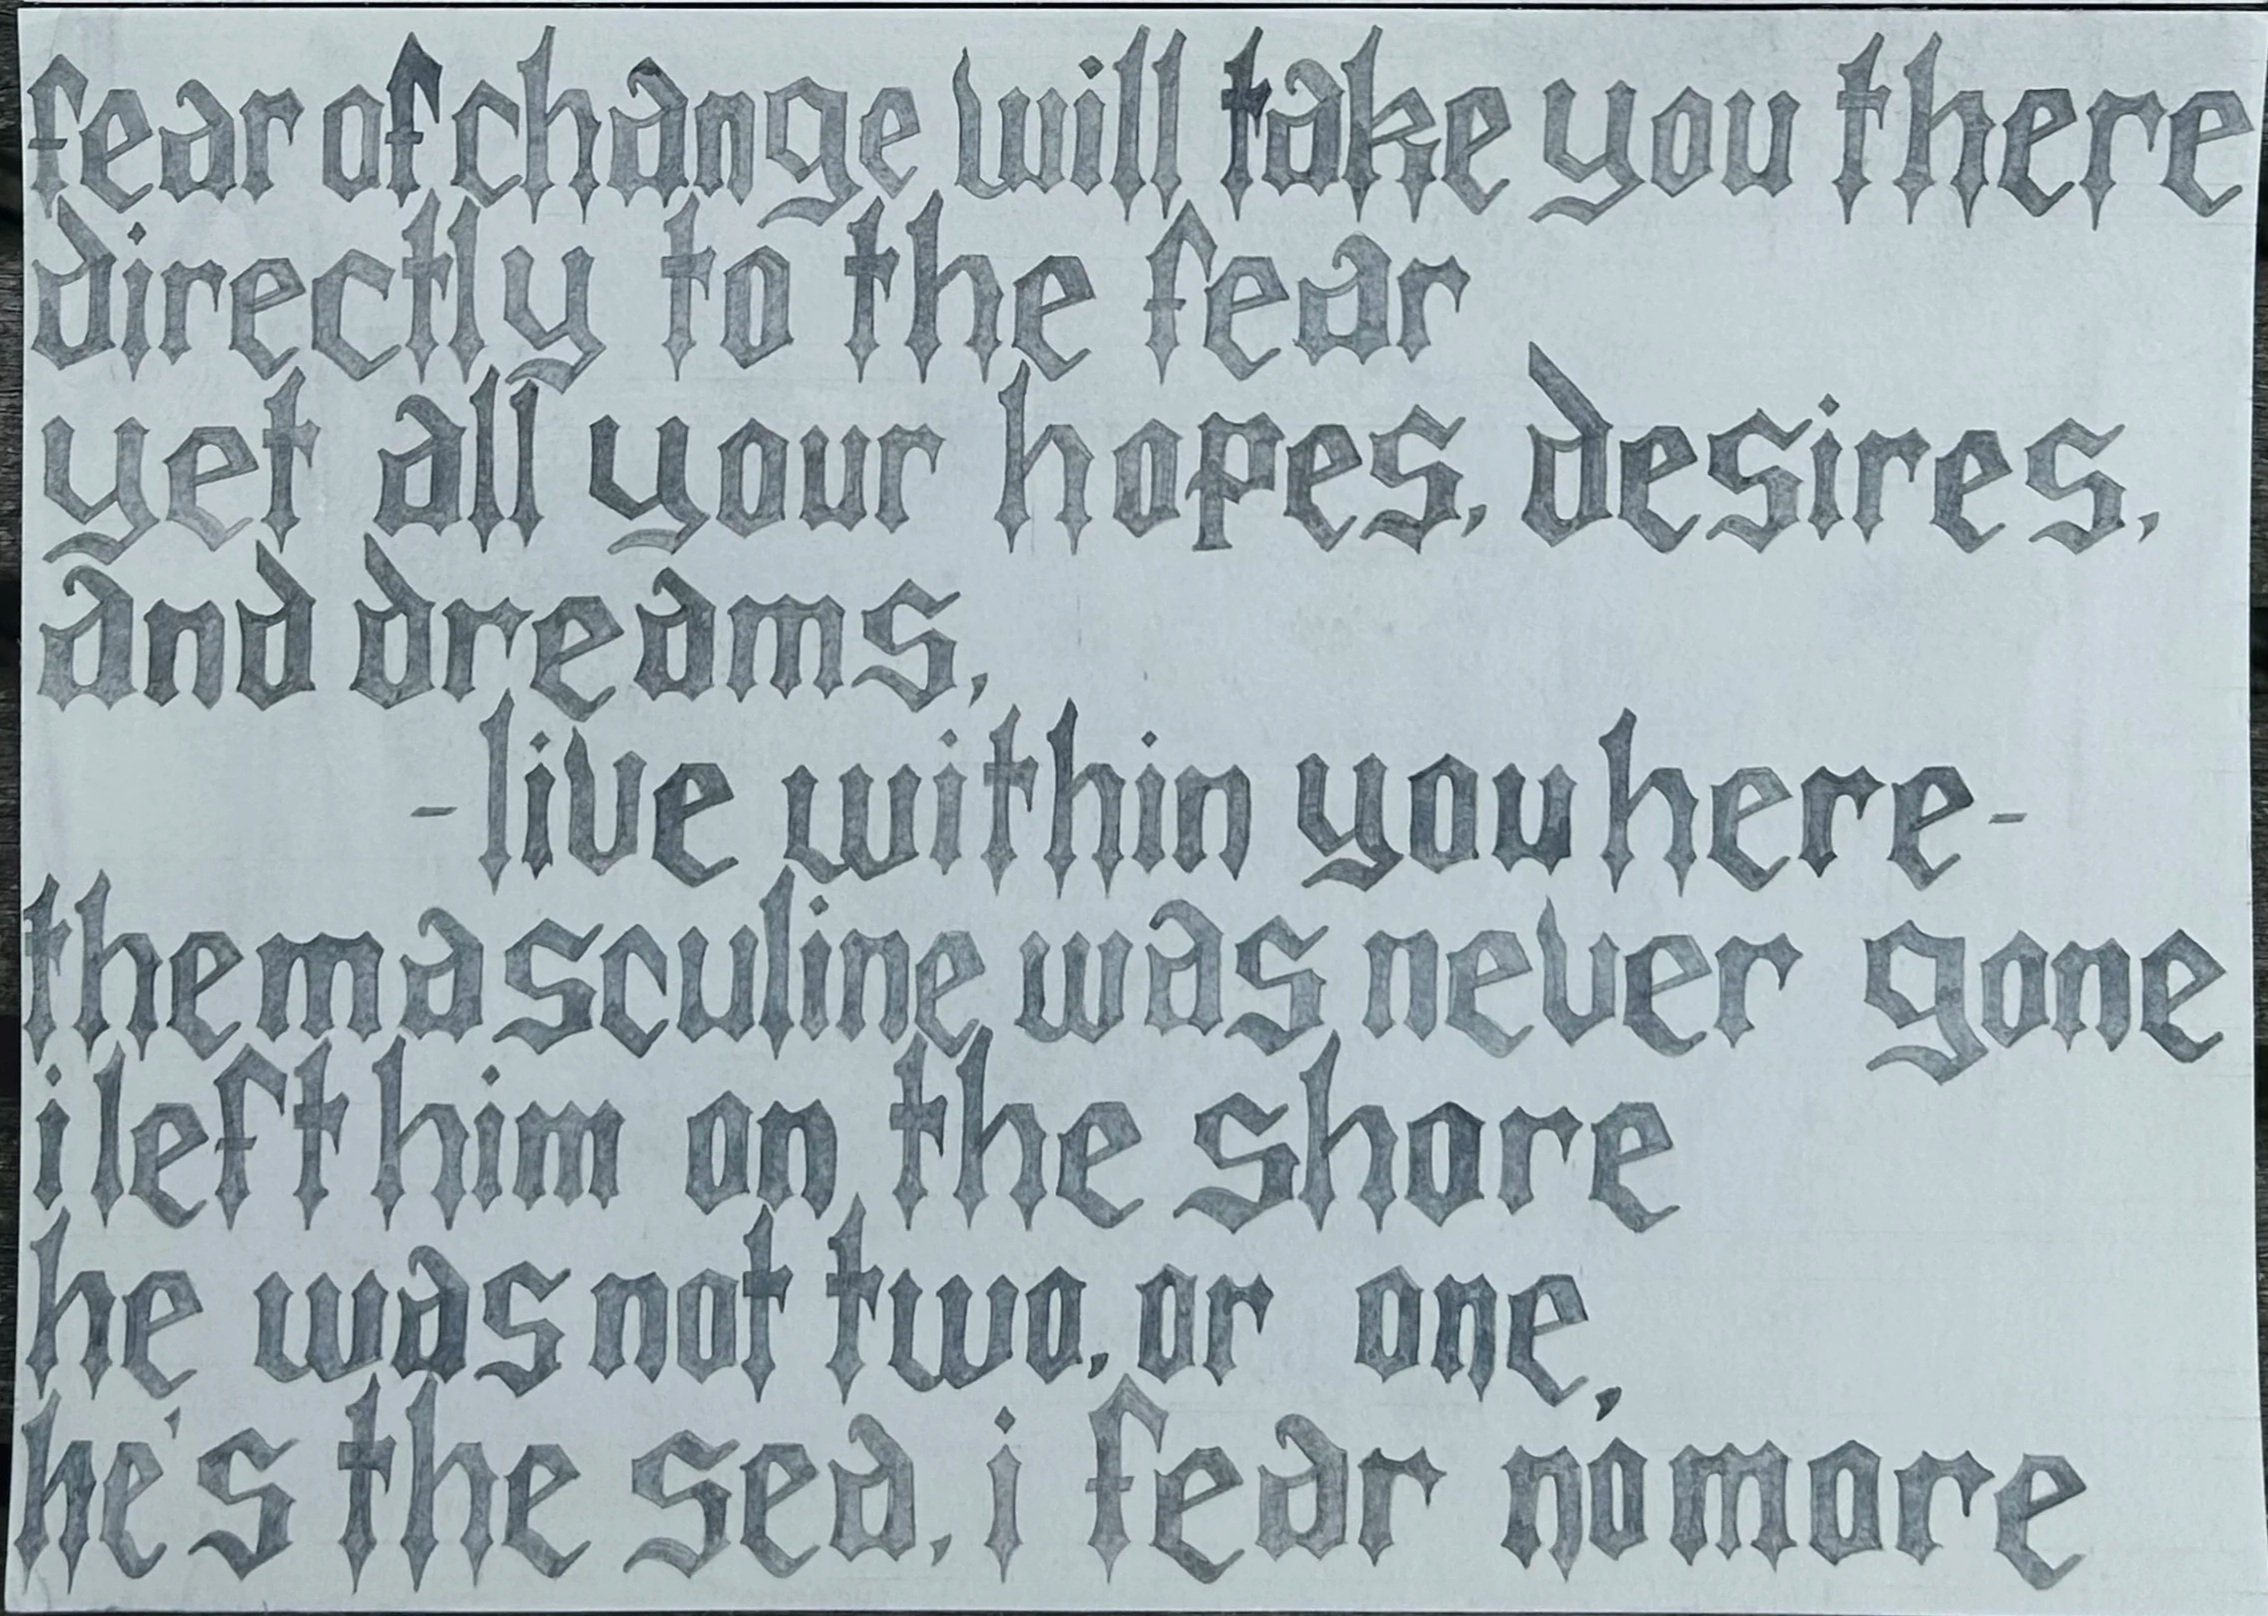 fear of change will take you there
directly to the fear
yet all your hopes, desires,
and dreams,
-live within you here-
the masculine was never gone
i left him on the shore
he was not two, or one,
he's the sea, i fear no more